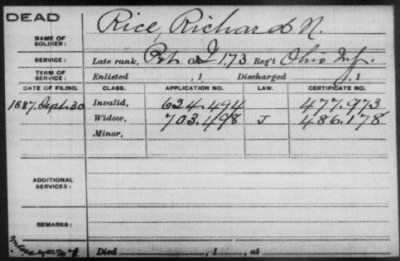 DEAD
NAME OF SOLDIER: Rice, Richard N.
SERVICE: Late rank, Pvt. Co. I, 173 Reg't Ohio Inf.
TERM OF SERVICE: Enlisted , 1 Discharged , 1
DATE OF FILING. CLASS. APPLICATION NO. LAW. CERTIFICATE NO.
1887, Sept. 30 Invalid, 624.494 477.973
Widow, 703.498 J 486.178
Minor,
ADDITIONAL SERVICES:
REMARKS:
Died , 1 , at